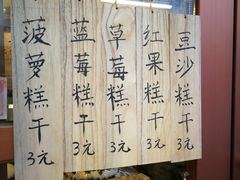 菠萝糕干3元
蓝莓糕干3元
草莓糕干3元
红果糕干3元
豆沙糕干3元